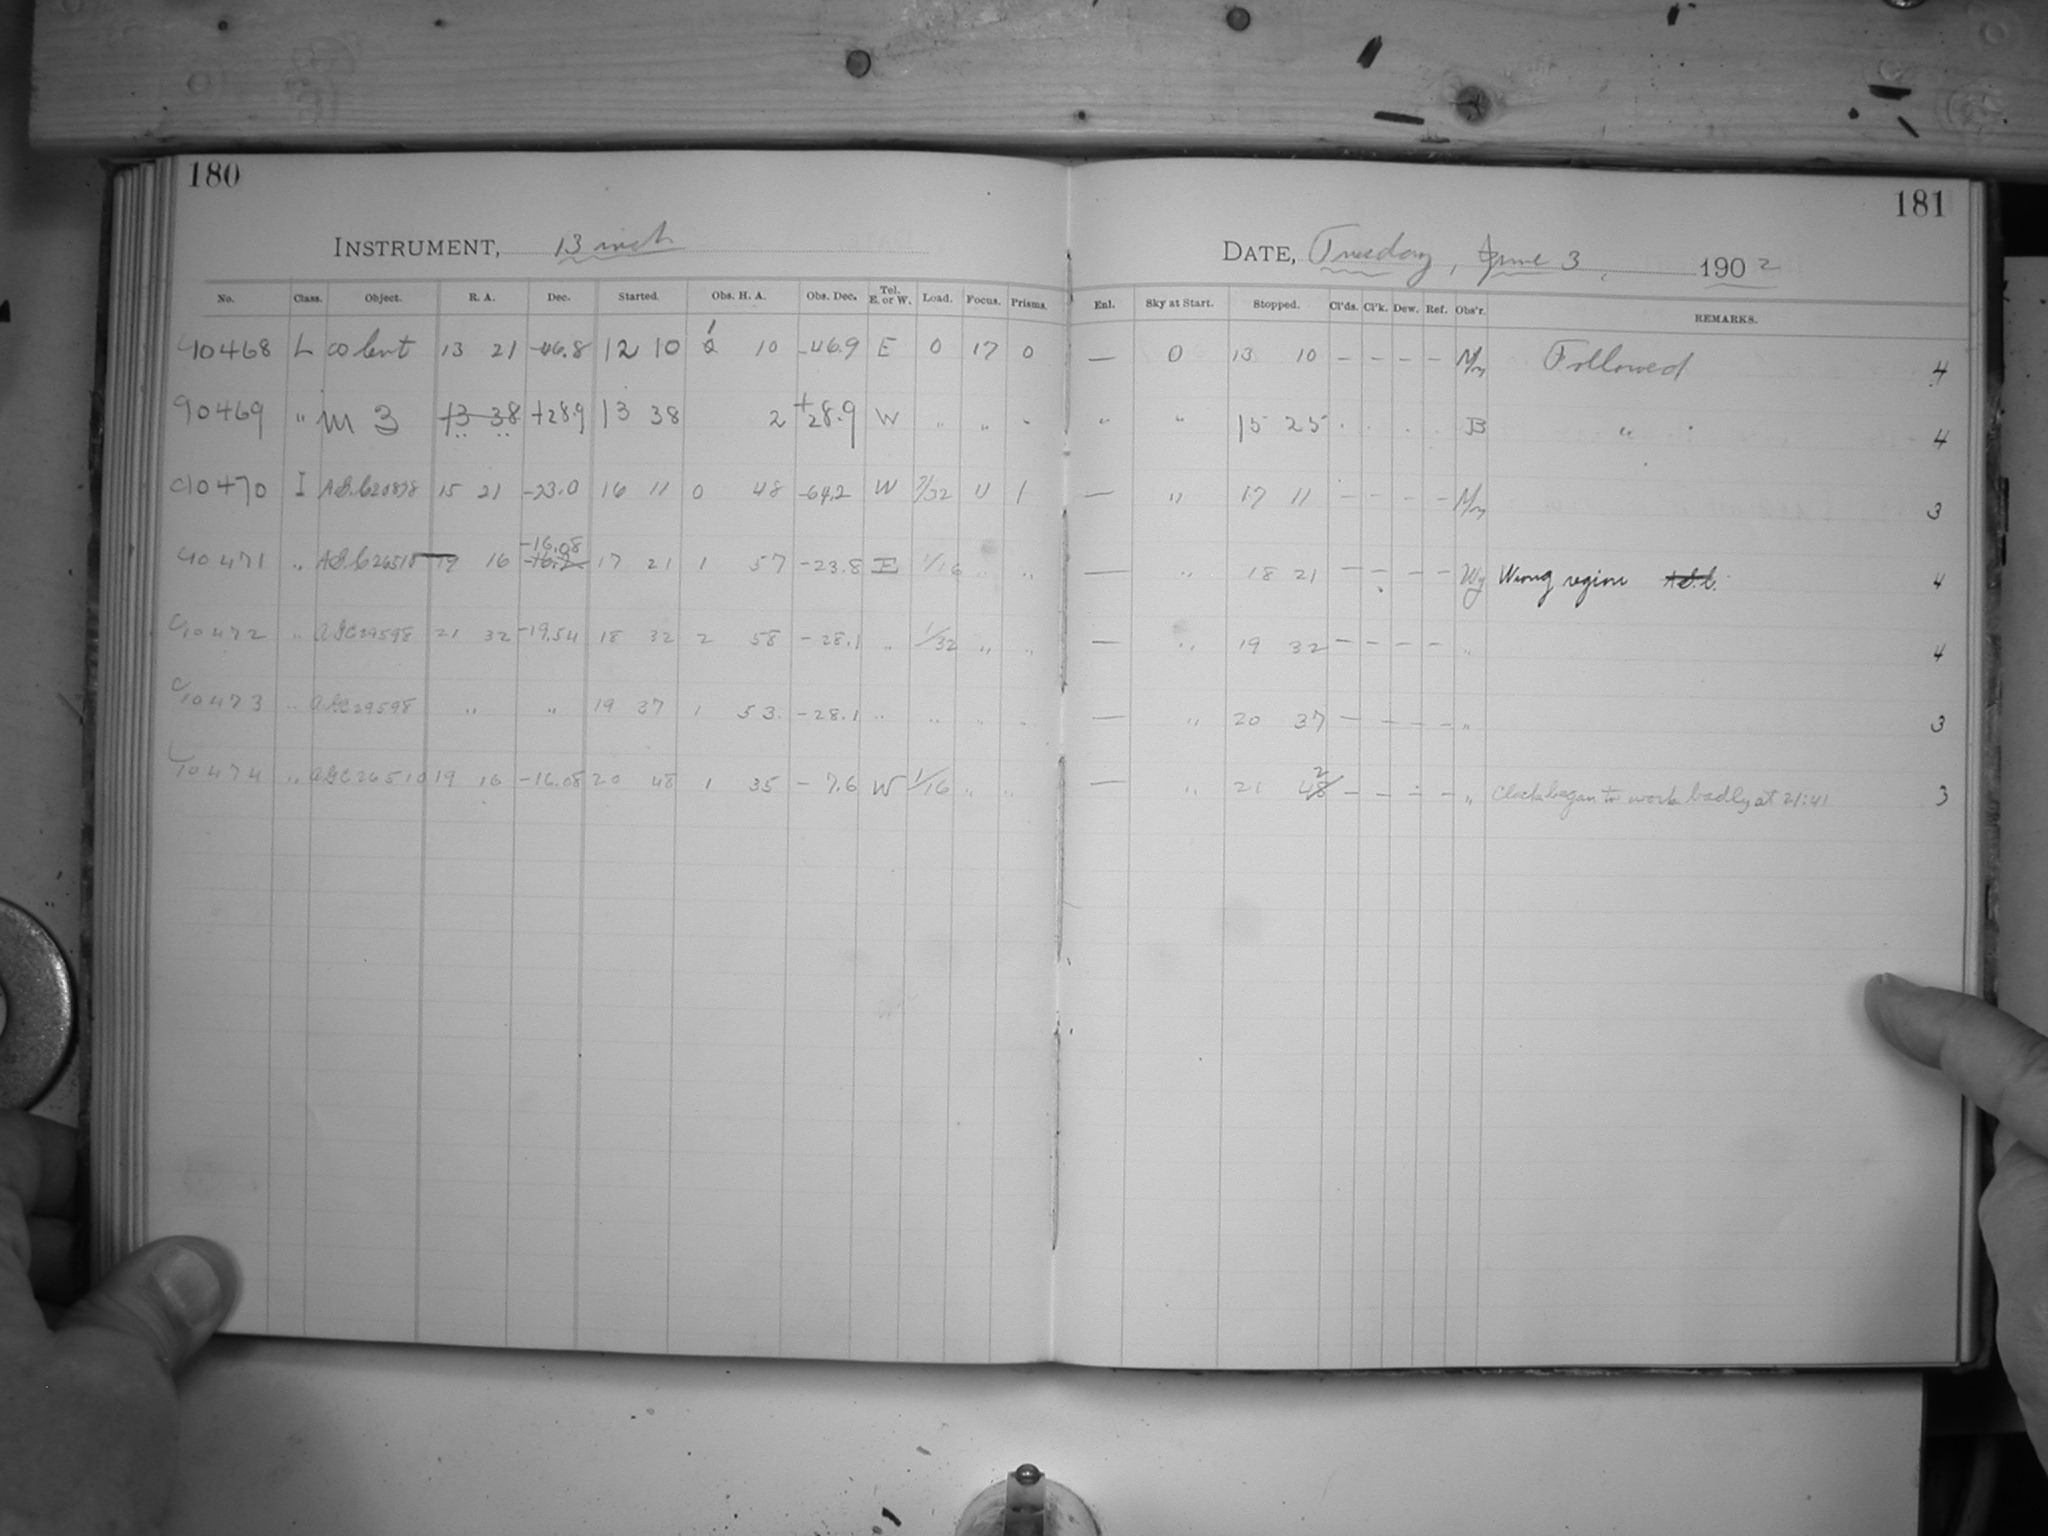 180
INSTRUMENT, 13 inch
No. Class. Object. R. A. Dec. Started. Obs. H. A. Obs. Dec. Tel. E. or W. Load. Focus. Prisms.
10468 L ω Cent 13 21 -46.8 12 10 1 10 -46.9 E 0 17 0
10469 " M 3 13 38 +28.9 13 38 2 +28.9 W " " "
10470 I A.G.C. 20878 15 21 -23.0 16 11 0 48 -64.2 W 1/32 11 1
10471 " A.G.C. 26510 19 16 -16.08 -16.2 17 21 1 57 -23.8 E 1/16 " "
10472 " AGC 29598 21 32 -19.54 18 32 2 58 -28.1 " 1/32 " "
10473 " AGC 29598 " " 19 37 1 53 -28.1 " " " "
10474 " AGC 26510 19 16 -16.08 20 48 1 35 -7.6 W 1/16 " "
181
DATE, Tuesday, June 3, 1902
Enl. Sky at Start. Stopped. Cl'ds. Cl'k. Dew. Ref. Obs'r. REMARKS.
— 0 13 10 — — — — Followed 4
" " 15 25 B " 4
— " 17 11 — — — — 3
— " 18 21 — — — — Wy Wrong region A.G.C. 4
— " 19 32 — — — — " 4
— " 20 37 — — — — " 3
— " 21 42 — — — — " Clock began to work badly at 21:41 3